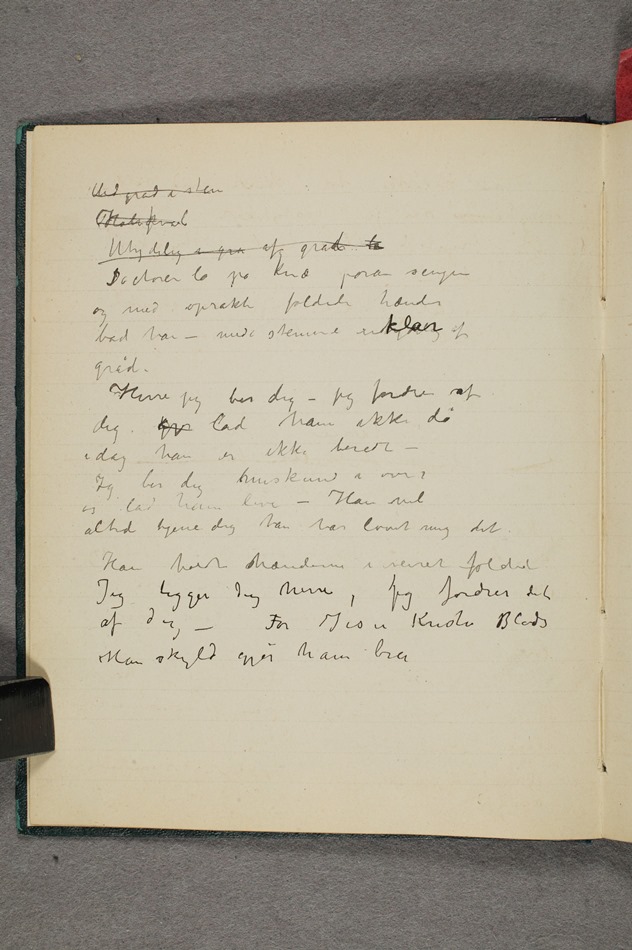 Doctoren lå på knæ foran sengen
og med oprakte foldede hænder
bad han – med stemme utydelig af
gråd.
Herre jeg ber dig – jeg fordrer af
dig. lad ham ikke dø
idag han er ikke beredt –
Jeg ber dig
og lad ham leve – Han vil
altid tjene dig han har lovet mig det.
Han holdt hænderne i veiret foldede
Jeg tigger dig herre, jeg fordrer det
af dig – For Jesu Kristi Blods
skyld gjør ham bra